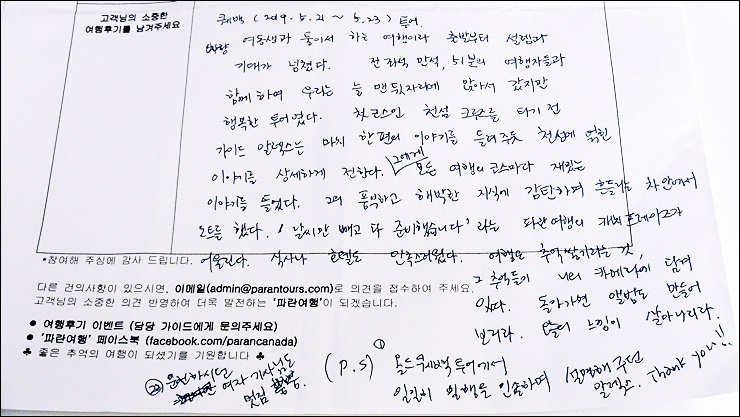 고객님의 소중한
여행후기를 남겨주세요
퀘백 (2019. 5. 21 ~ 5. 23) 투어.
여동생과 둘이서 하는 여행이라 출발부터 설렘과
기대가 넘쳤다. 전 좌석 만석, 51분의 여행자들과
함께 하여 우리는 늘 맨 뒷자리에 앉아서 갔지만
행복한 투어였다. 첫 코스인 천섬 크루즈를 타기 전
가이드 알렉스는 마치 한 편의 이야기를 들려주듯 천섬에 얽힌
이야기를 상세하게 전한다. 그에게 모든 여행의 코스마다 재밌는
이야기를 들었다. 그의 풍부하고 해박한 지식에 감탄하며 흔들리는 차 안에서
노트를 했다. '날씨만 빼고 다 준비했습니다' 라는 파란여행의 캐치프레이즈가
어울린다. 식사나 호텔도 만족스러웠다. 여행은 추억쌓기라는 것,
그 추억들이 나의 카메라에 담겨
있다. 돌아가면 앨범도 만들어
보리라. 많이 느낌이 살아나리라.
*참여해 주심에 감사 드립니다.
다른 건의사항이 있으시면, 이메일(admin@parantours.com)로 의견을 접수하여 주세요.
고객님의 소중한 의견 반영하여 더욱 발전하는 '파란여행'이 되겠습니다.
● 여행후기 이벤트 (담당 가이드에게 문의주세요)
● '파란여행' 페이스북 (facebook.com/parancanada)
♣ 좋은 추억의 여행이 되셨기를 기원합니다 ♣
(P.S) ① 몽드퀘백 투어에서
일일히 일행을 인솔하며 설명해 주던
알렉스. Thank you!!
② 운전하시던
여자 기사님도
멋짐